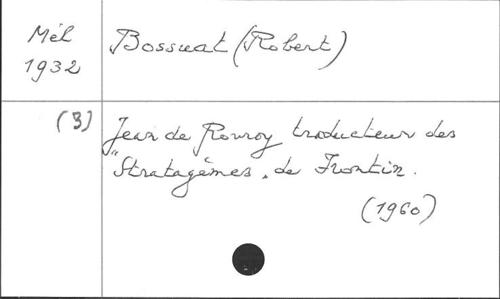 Mél
1932
Bossuat (Robert)
(3)
Jean de Rouroy traducteur des
"Stratagèmes" de Frontin.
(1960)